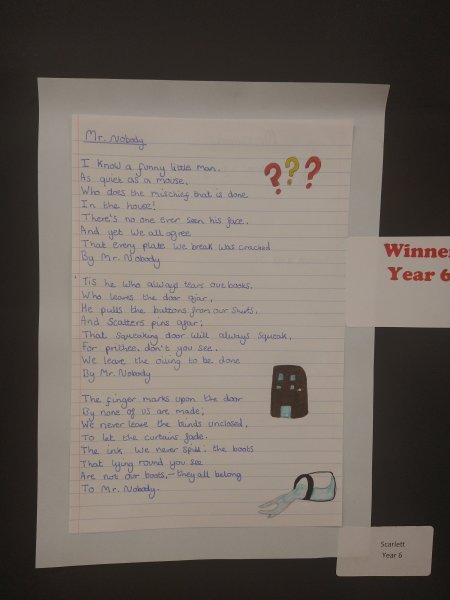 Mr. Nobody
I know a funny little man.
As quiet as a mouse,
Who does the mischief that is done
In the house!
There's no one ever seen his face.
And yet we all agree
That every plate we break was cracked
By Mr. Nobody
Tis he who always tears our books,
Who leaves the door ajar,
He pulls the buttons from our shirts,
And scatters pins afar;
That squeaking door will always squeak,
For prithee, don't you see,
We leave the oiling to be done
By Mr. Nobody
The finger marks upon the door
By none of us are made;
We never leave the blinds unclosed,
To let the curtains fade.
The ink we never spill; the boots
That lying round you see
Are not our boots,—they all belong
To Mr. Nobody.
???
Winner
Year 6
Scarlett
Year 6